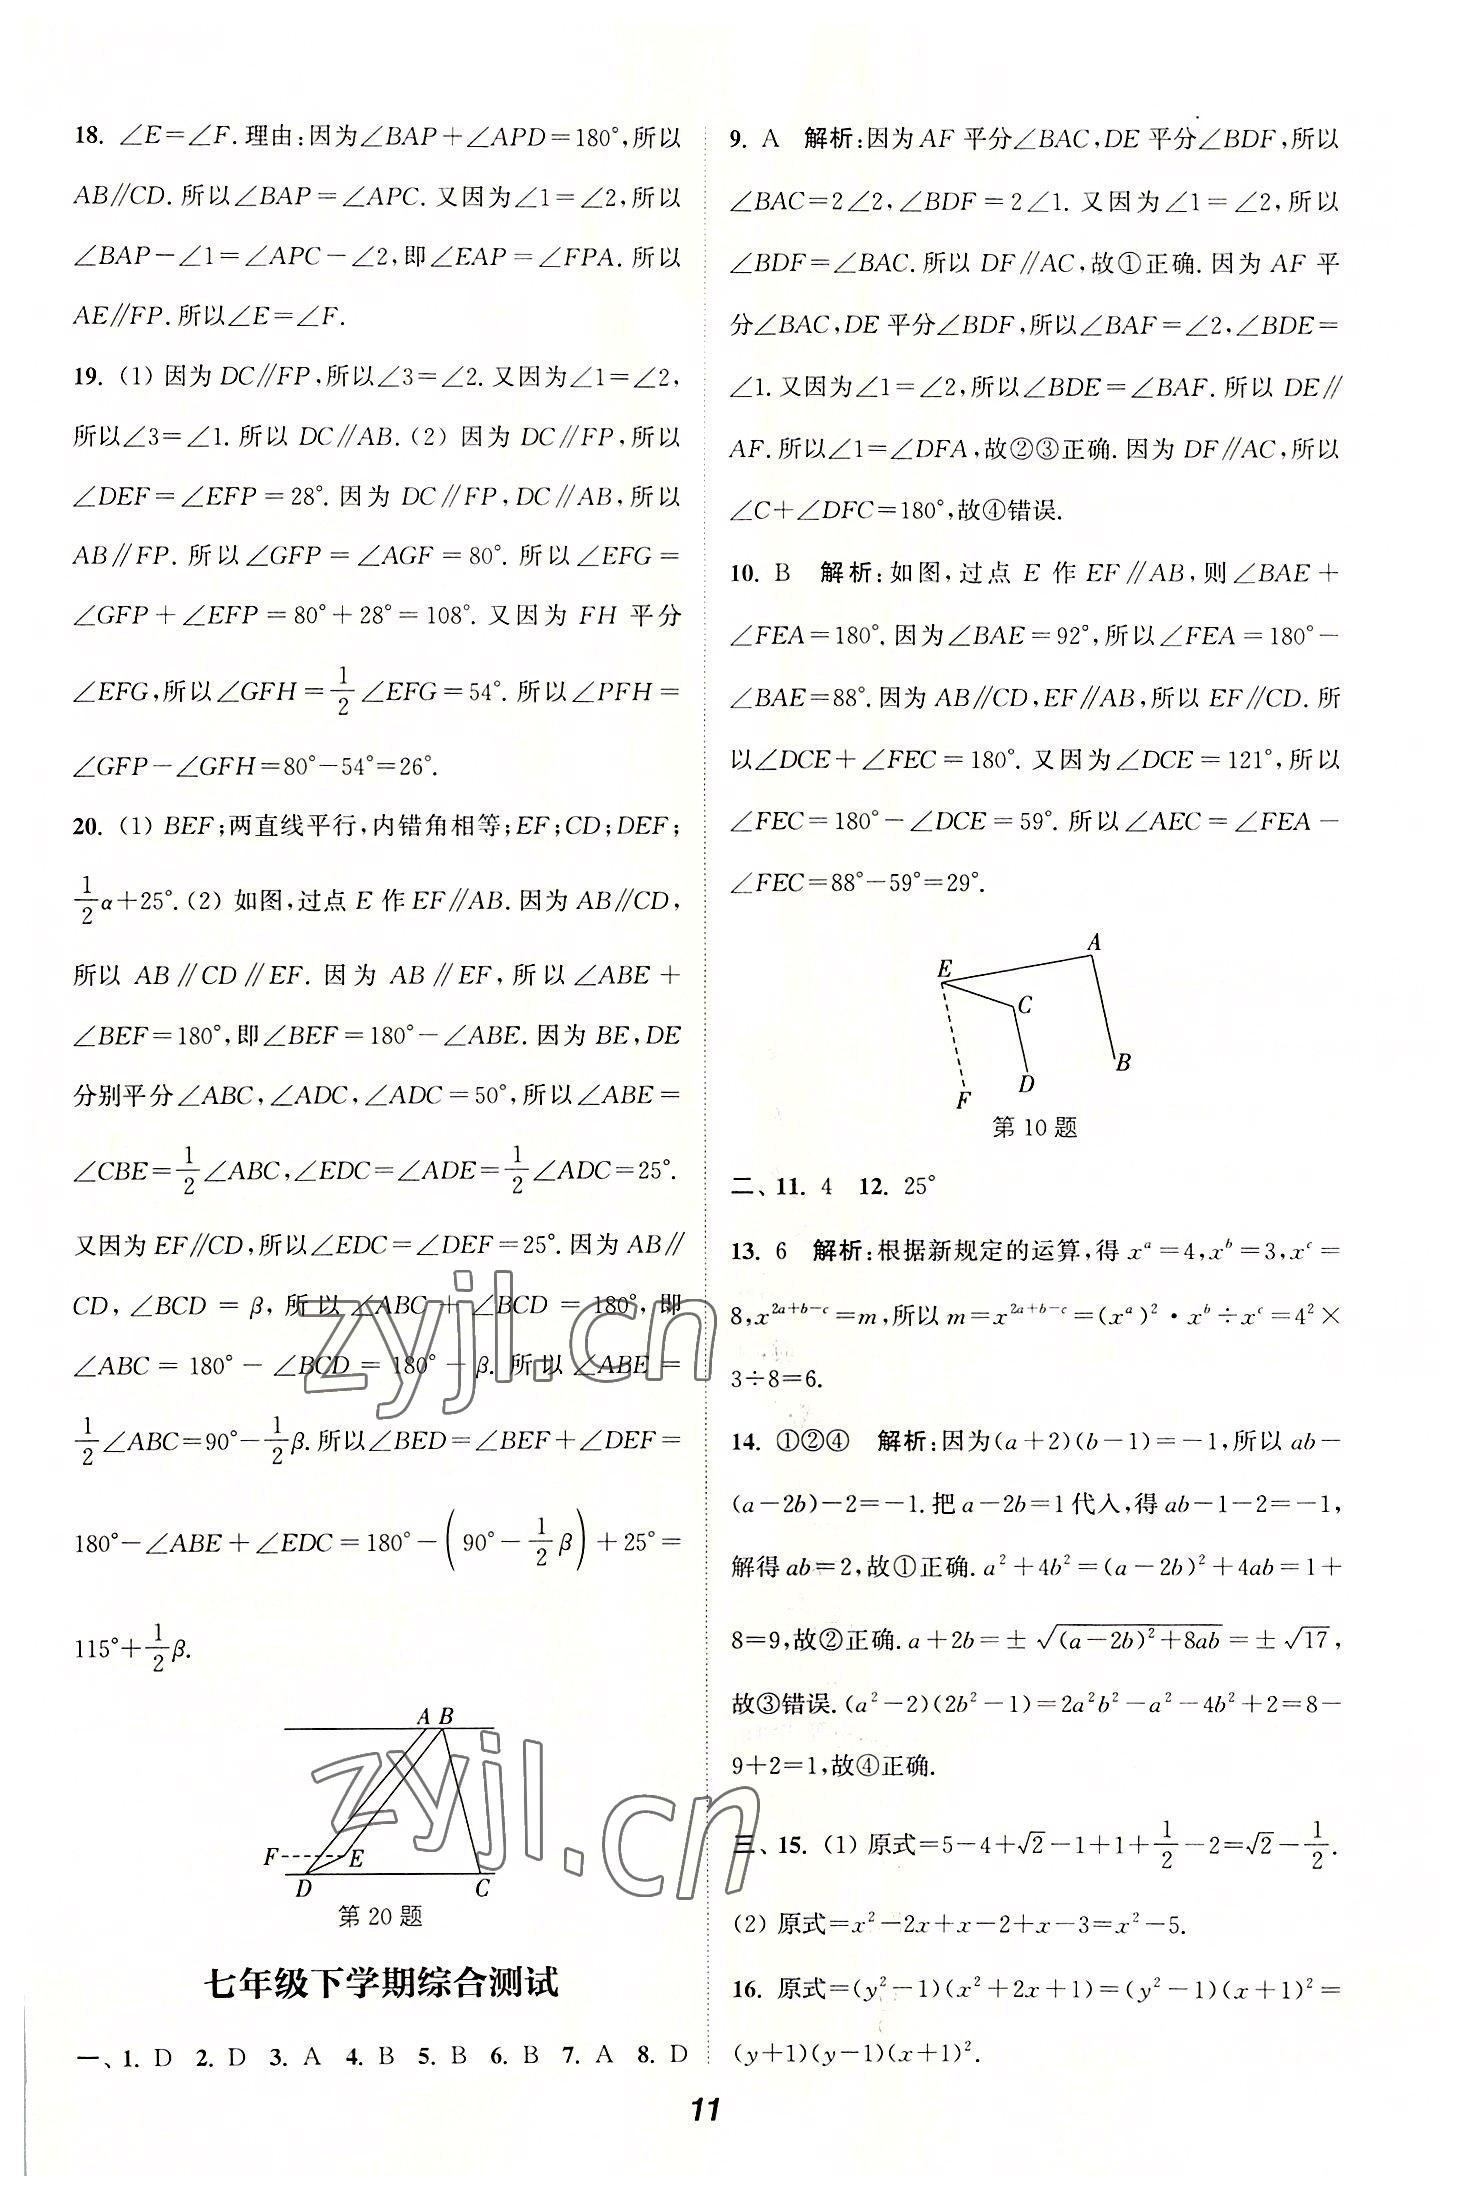 18. ∠E=∠F.理由:因为∠BAP+∠APD=180°,所以
AB∥CD.所以∠BAP=∠APC.又因为∠1=∠2,所以
∠BAP-∠1=∠APC-∠2,即∠EAP=∠FPA.所以
AE∥FP.所以∠E=∠F.
19. (1) 因为DC∥FP,所以∠3=∠2.又因为∠1=∠2,
所以∠3=∠1.所以 DC∥AB.(2) 因为DC∥FP,所以
∠DEF=∠EFP=28°.因为 DC∥FP,DC∥AB,所以
AB∥FP.所以∠GFP=∠AGF=80°.所以∠EFG=
∠GFP+∠EFP=80°+28°=108°.又因为FH平分
∠EFG,所以∠GFH=1/2∠EFG=54°.所以∠PFH=
∠GFP-∠GFH=80°-54°=26°.
20. (1) BEF;两直线平行,内错角相等;EF;CD;DEF;
1/2α+25°.(2) 如图,过点E作EF∥AB.因为AB∥CD,
所以AB∥CD∥EF.因为AB∥EF,所以∠ABE+
∠BEF=180°,即∠BEF=180°-∠ABE.因为BE,DE
分别平分∠ABC,∠ADC,∠ADC=50°,所以∠ABE=
∠CBE=1/2∠ABC,∠EDC=∠ADE=1/2∠ADC=25°.
又因为EF∥CD,所以∠EDC=∠DEF=25°.因为AB∥
CD,∠BCD=β,所以∠ABC+∠BCD=180°,即
∠ABC=180°-∠BCD=180°-β.所以∠ABE=
1/2∠ABC=90°-1/2β.所以∠BED=∠BEF+∠DEF=
180°-∠ABE+∠EDC=180°-(90°-1/2β)+25°=
115°+1/2β.
A B
F E
D C
第20题
七年级下学期综合测试
一、1. D 2. D 3. A 4. B 5. B 6. B 7. A 8. D
9. A 解析:因为AF平分∠BAC,DE平分∠BDF,所以
∠BAC=2∠2,∠BDF=2∠1.又因为∠1=∠2,所以
∠BDF=∠BAC.所以DF∥AC,故①正确.因为AF平
分∠BAC,DE平分∠BDF,所以∠BAF=∠2,∠BDE=
∠1.又因为∠1=∠2,所以∠BDE=∠BAF.所以DE∥
AF.所以∠1=∠DFA,故②③正确.因为DF∥AC,所以
∠C+∠DFC=180°,故④错误.
10. B 解析:如图,过点E作EF∥AB,则∠BAE+
∠FEA=180°.因为∠BAE=92°,所以∠FEA=180°-
∠BAE=88°.因为AB∥CD,EF∥AB,所以EF∥CD.所
以∠DCE+∠FEC=180°.又因为∠DCE=121°,所以
∠FEC=180°-∠DCE=59°.所以∠AEC=∠FEA-
∠FEC=88°-59°=29°.
A
E
C
B
D
F
第10题
二、11. 4 12. 25°
13. 6 解析:根据新规定的运算,得xᵃ=4,xᵇ=3,xᶜ=
8,x²ᵃ⁺ᵇ⁻ᶜ=m,所以m=x²ᵃ⁺ᵇ⁻ᶜ=(xᵃ)²·xᵇ÷xᶜ=4²×
3÷8=6.
14. ①②④ 解析:因为(a+2)(b-1)=-1,所以ab-
(a-2b)-2=-1.把a-2b=1代入,得ab-1-2=-1,
解得ab=2,故①正确.a²+4b²=(a-2b)²+4ab=1+
8=9,故②正确.a+2b=±√((a-2b)²+8ab)=±√17,
故③错误.(a²-2)(2b²-1)=2a²b²-a²-4b²+2=8-
9+2=1,故④正确.
三、15. (1) 原式=5-4+√2-1+1+1/2-2=√2-1/2.
(2) 原式=x²-2x+x-2+x-3=x²-5.
16. 原式=(y²-1)(x²+2x+1)=(y²-1)(x+1)²=
(y+1)(y-1)(x+1)².
11
zyjl.cn
zyjl.cn